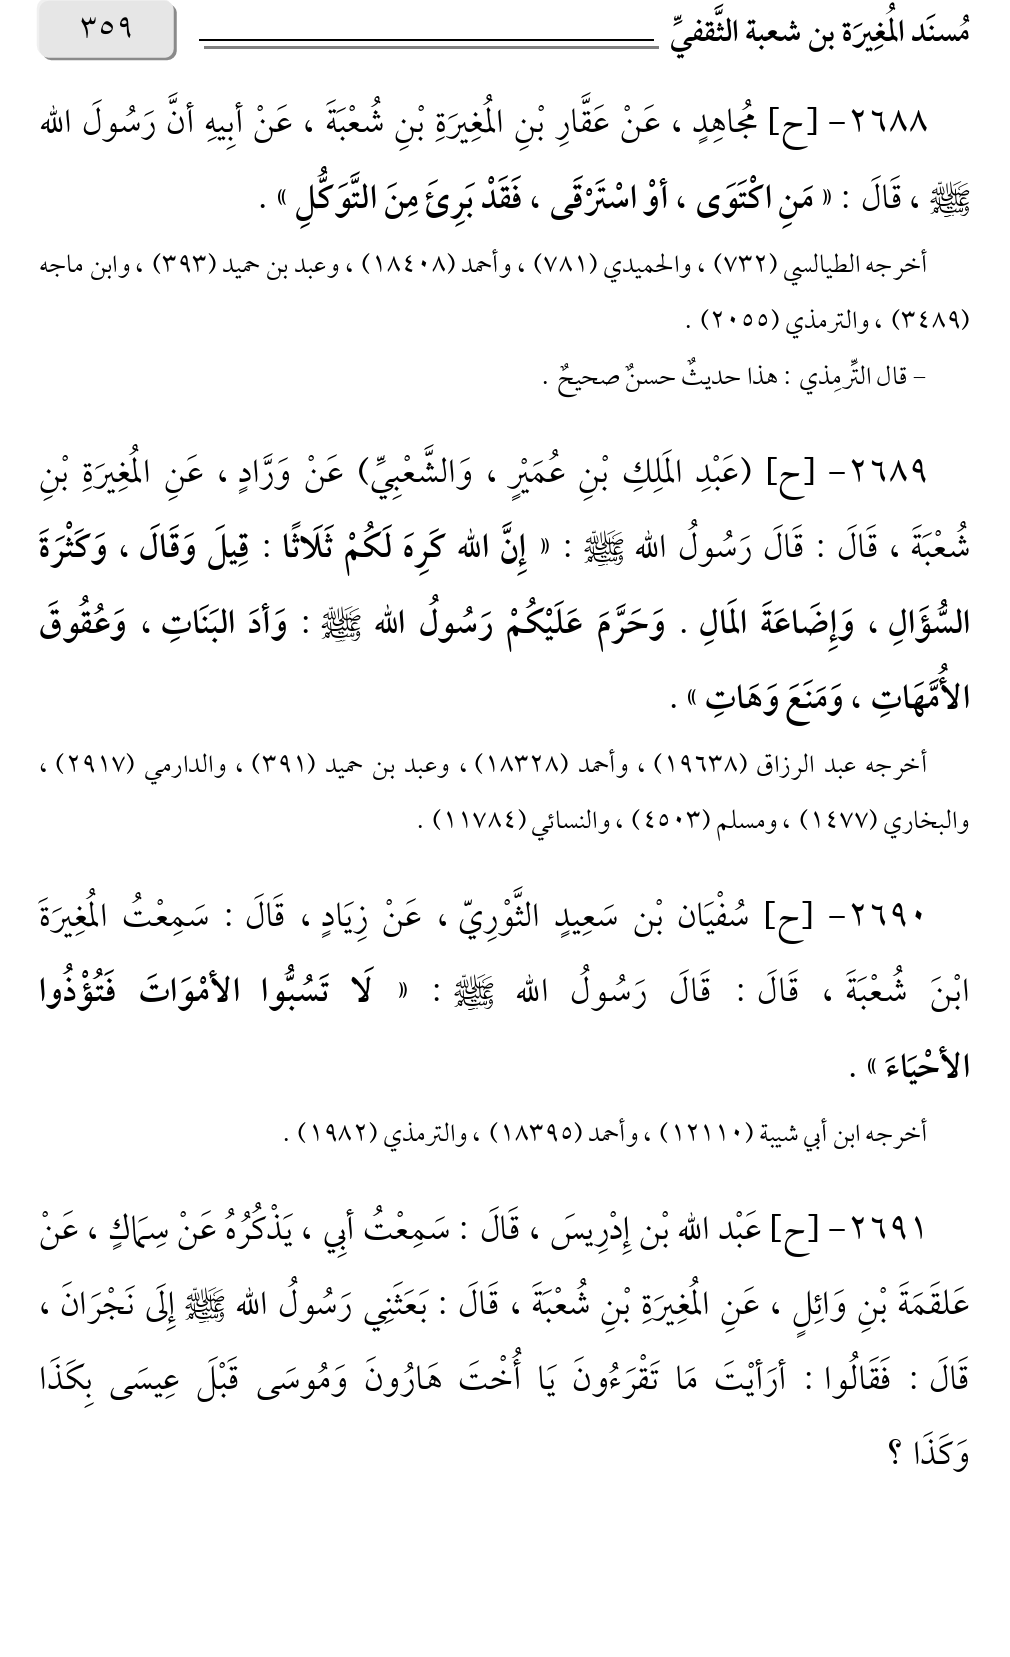 مُسنَد المُغِيرَة بن شعبة الثَّقفيِّ
٣٥٩
٢٦٨٨- [ح] مُجاهِدٍ ، عَنْ عَقَّارِ بْنِ المُغِيرَةِ بْنِ شُعْبَةَ ، عَنْ أبِيهِ أنَّ رَسُولَ الله
ﷺ ، قَالَ : « مَنِ اكْتَوَى ، أوْ اسْتَرْقَى ، فَقَدْ بَرِئَ مِنَ التَّوَكُّلِ » .
أخرجه الطيالسي (٧٣٢) ، والحميدي (٧٨١) ، وأحمد (١٨٤٠٨) ، وعبد بن حميد (٣٩٣) ، وابن ماجه
(٣٤٨٩) ، والترمذي (٢٠٥٥) .
– قال التِّرمِذي : هذا حديثٌ حسنٌ صحيحٌ .
٢٦٨٩- [ح] (عَبْدِ المَلِكِ بْنِ عُمَيْرٍ ، وَالشَّعْبِيِّ) عَنْ وَرَّادٍ ، عَنِ المُغِيرَةِ بْنِ
شُعْبَةَ ، قَالَ : قَالَ رَسُولُ الله ﷺ : « إِنَّ الله كَرِهَ لَكُمْ ثَلَاثًا : قِيلَ وَقَالَ ، وَكَثْرَةَ
السُّؤَالِ ، وَإِضَاعَةَ المَالِ . وَحَرَّمَ عَلَيْكُمْ رَسُولُ الله ﷺ : وَأدَ البَنَاتِ ، وَعُقُوقَ
الأُمَّهَاتِ ، وَمَنَعَ وَهَاتِ » .
أخرجه عبد الرزاق (١٩٦٣٨) ، وأحمد (١٨٣٢٨) ، وعبد بن حميد (٣٩١) ، والدارمي (٢٩١٧) ،
والبخاري (١٤٧٧) ، ومسلم (٤٥٠٣) ، والنسائي (١١٧٨٤) .
٢٦٩٠- [ح] سُفْيَان بْن سَعِيدٍ الثَّوْرِيّ ، عَنْ زِيَادٍ ، قَالَ : سَمِعْتُ المُغِيرَةَ
ابْنَ شُعْبَةَ ، قَالَ : قَالَ رَسُولُ الله ﷺ : « لَا تَسُبُّوا الأمْوَاتَ فَتُؤْذُوا
الأحْيَاءَ » .
أخرجه ابن أبي شيبة (١٢١١٠) ، وأحمد (١٨٣٩٥) ، والترمذي (١٩٨٢) .
٢٦٩١- [ح] عَبْد الله بْن إِدْرِيسَ ، قَالَ : سَمِعْتُ أبِي ، يَذْكُرُهُ عَنْ سِمَاكٍ ، عَنْ
عَلقَمَةَ بْنِ وَائِلٍ ، عَنِ المُغِيرَةِ بْنِ شُعْبَةَ ، قَالَ : بَعَثَنِي رَسُولُ الله ﷺ إِلَى نَجْرَانَ ،
قَالَ : فَقَالُوا : أرَأيْتَ مَا تَقْرَءُونَ يَا أُخْتَ هَارُونَ وَمُوسَى قَبْلَ عِيسَى بِكَذَا
وَكَذَا ؟